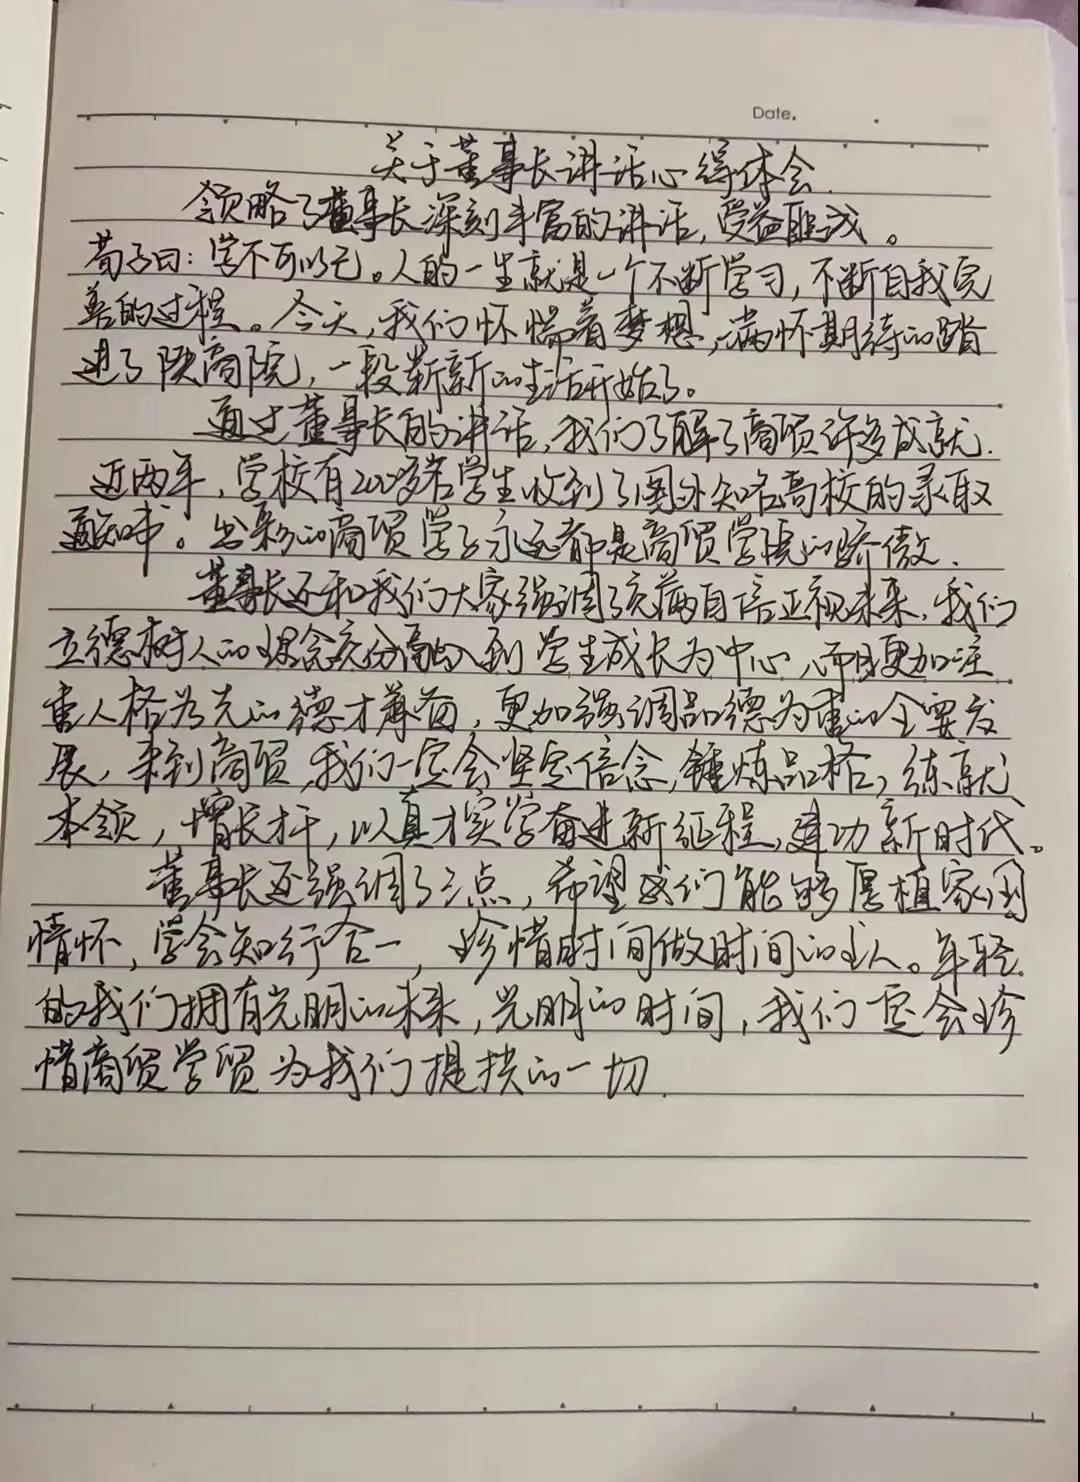 Date.
关于董事长讲话心得体会.
领略了董事长深刻丰富的讲话,受益匪浅。
荀子曰:学不可以已。人的一生就是一个不断学习,不断自我完
善的过程。今天,我们怀惴着梦想,满怀期待的踏
进了陕商院,一段崭新的生活开始了。
通过董事长的讲话,我们了解了商贸许多成就.
近两年,学校有200多名学生收到了国外知名高校的录取
通知书。出彩的商贸学子永远都是商贸学院的骄傲.
董事长还和我们大家强调了充满自信正视未来,我们
立德树人的理念充分融入到学生成长为中心,而且更加注
重人格为先的德才兼备,更加强调品德为重的全要发
展,来到商贸,我们一定会坚定信念,锤炼品格,练就
本领,增长才干,以真才实学奋进新征程,建功新时代。
董事长还强调了三点,希望我们能够厚植家国
情怀,学会知行合一,珍惜时间做时间的主人。年轻
的我们拥有光明的未来,光明的时间,我们一定会珍
惜商贸学贸为我们提拱的一切.